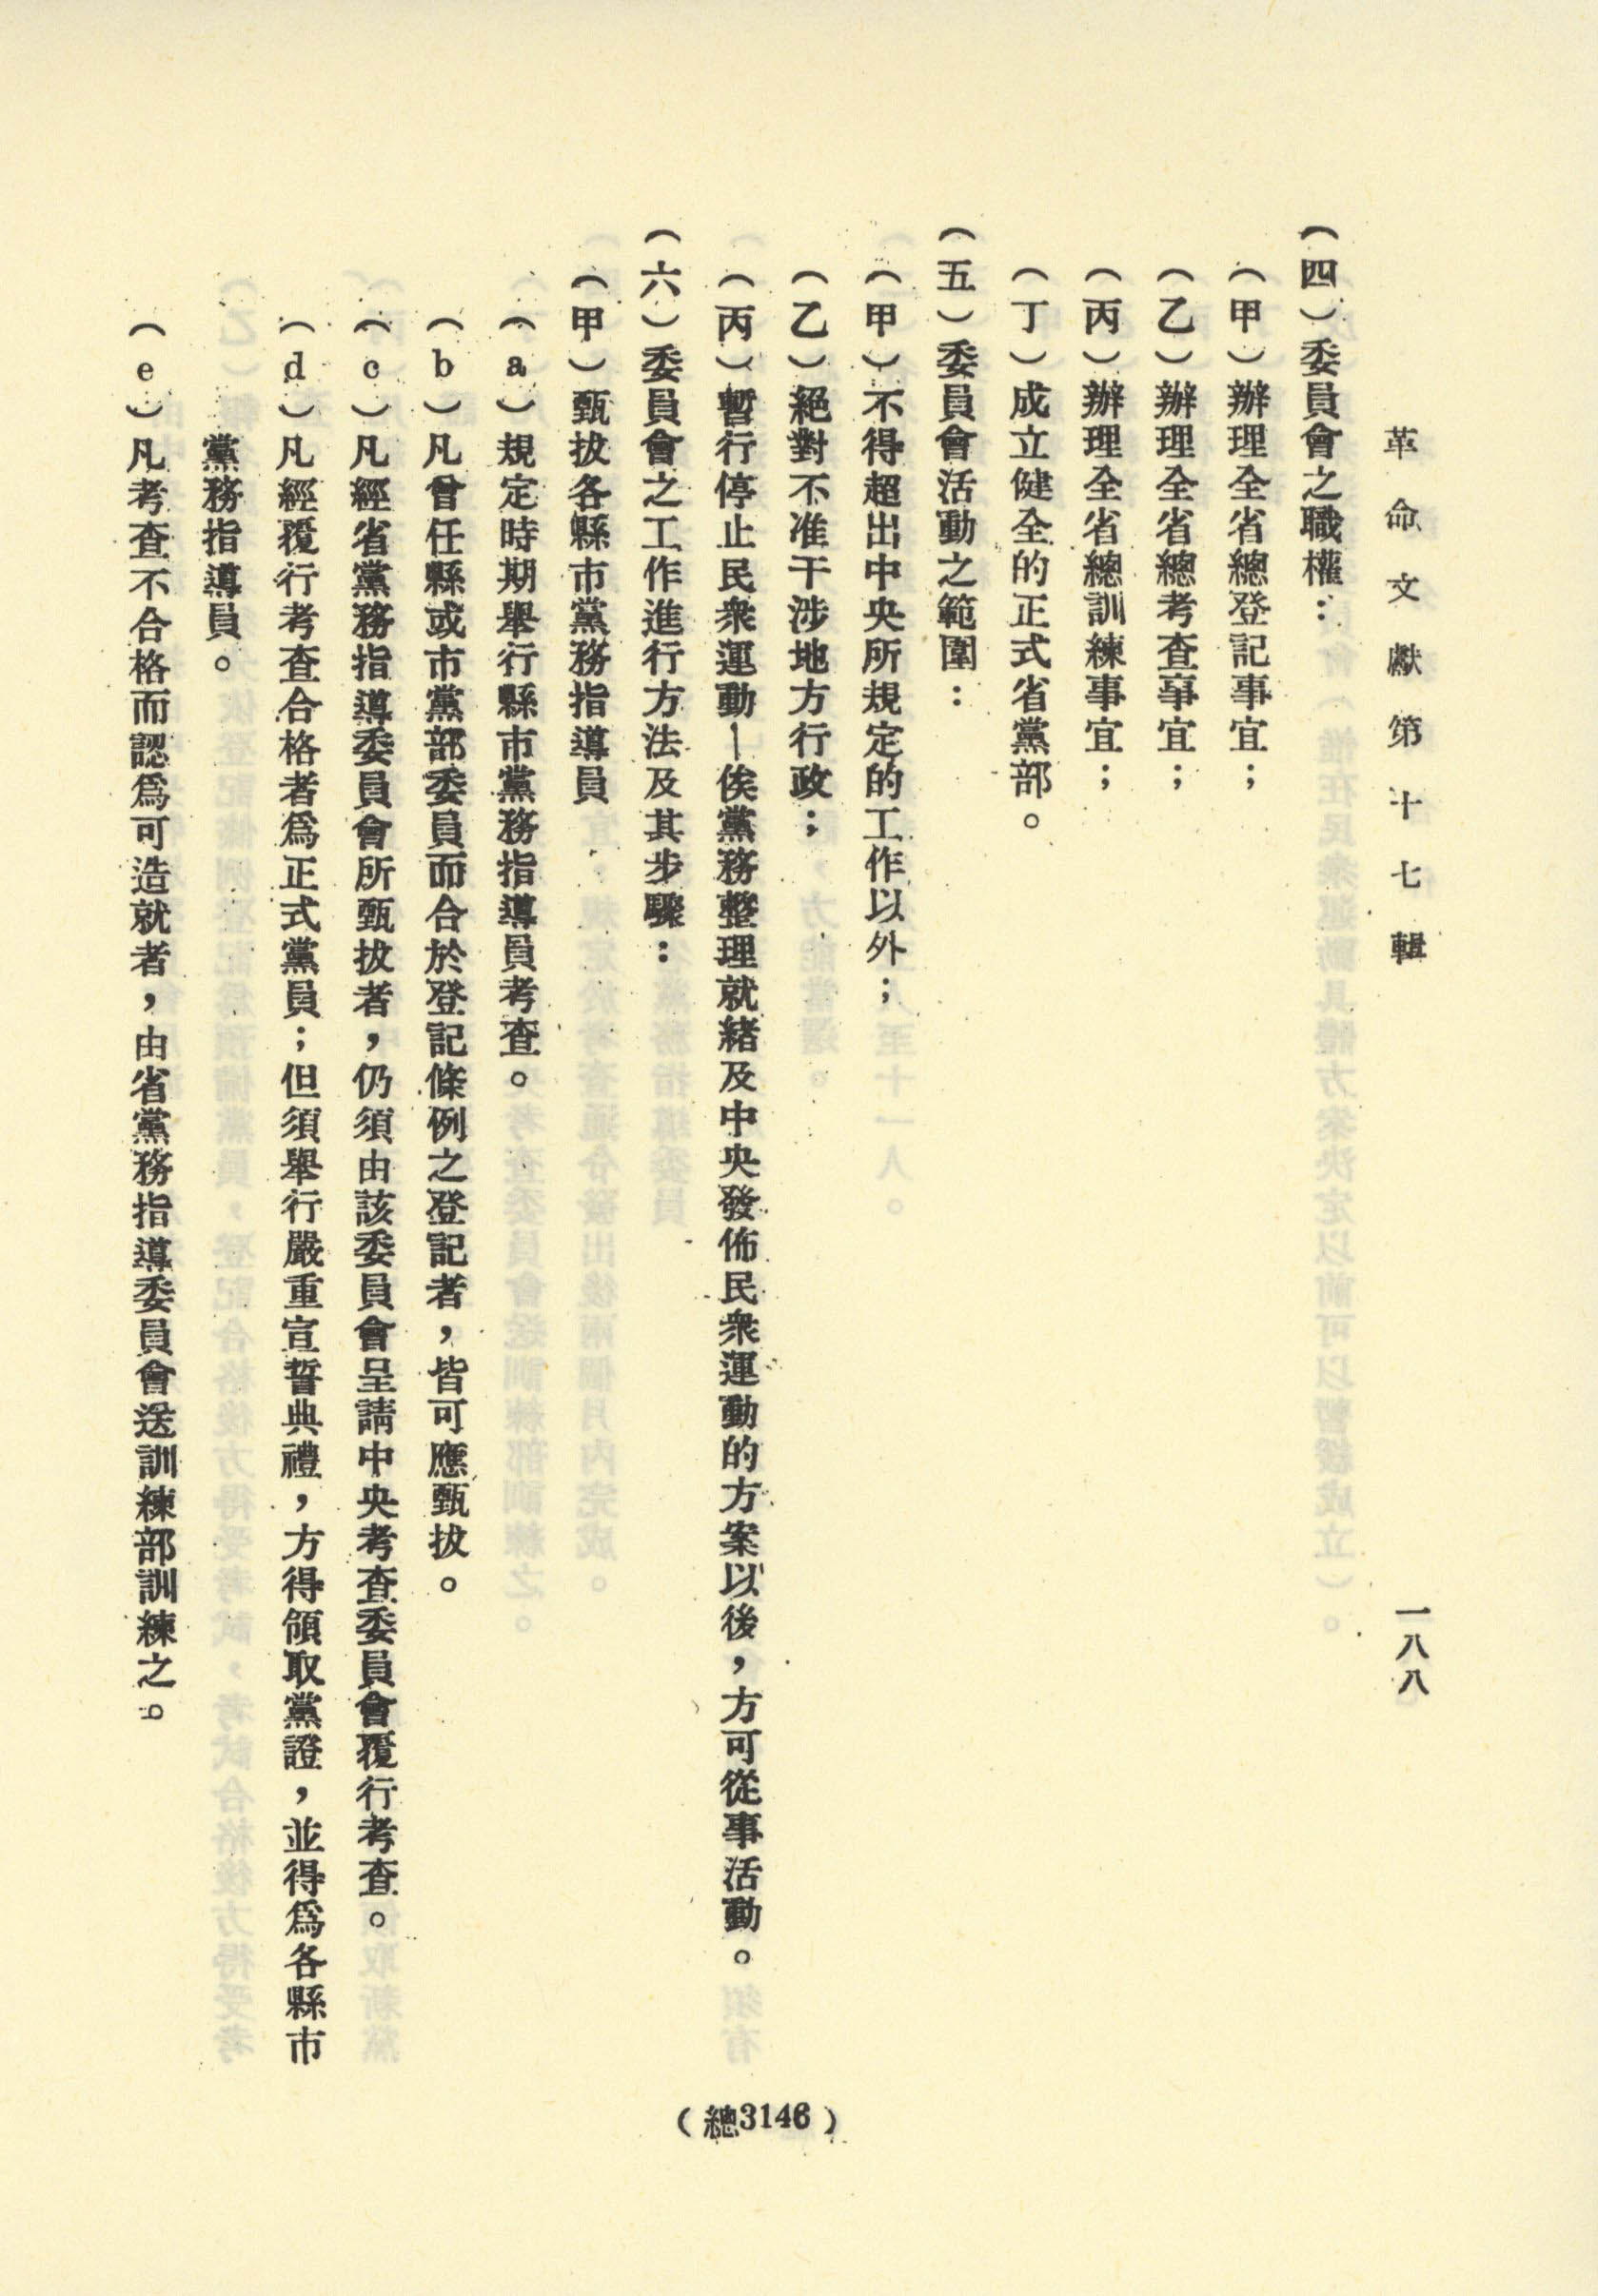 革命文獻第十七輯
一八八
（四）委員會之職權：
（甲）辦理全省總登記事宜；
（乙）辦理全省總考查事宜；
（丙）辦理全省總訓練事宜；
（丁）成立健全的正式省黨部。
（五）委員會活動之範圍：
（甲）不得超出中央所規定的工作以外；
（乙）絕對不准干涉地方行政；
（丙）暫行停止民衆運動—俟黨務整理就緒及中央發佈民衆運動的方案以後，方可從事活動。
（六）委員會之工作進行方法及其步驟：
（甲）甄拔各縣市黨務指導員
（a）規定時期舉行縣市黨務指導員考查。
（b）凡曾任縣或市黨部委員而合於登記條例之登記者，皆可應甄拔。
（c）凡經省黨務指導委員會所甄拔者，仍須由該委員會呈請中央考查委員會覆行考查。
（d）凡經覆行考查合格者爲正式黨員；但須舉行嚴重宣誓典禮，方得領取黨證，並得爲各縣市
黨務指導員。
（e）凡考查不合格而認爲可造就者，由省黨務指導委員會送訓練部訓練之。
（總3146）